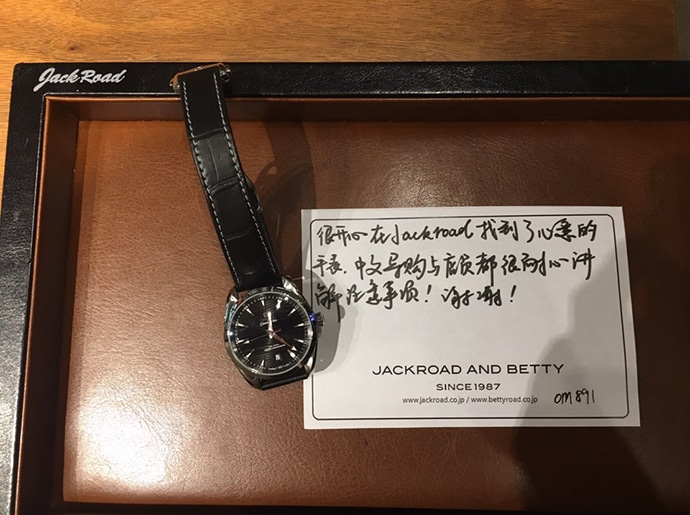 Jack Road
很开心在Jackroad找到了心意的
手表、中文导购与店员都很耐心讲
解注意事项！谢谢！
JACKROAD AND BETTY
SINCE 1987
www.jackroad.co.jp / www.bettyroad.co.jp
OM891